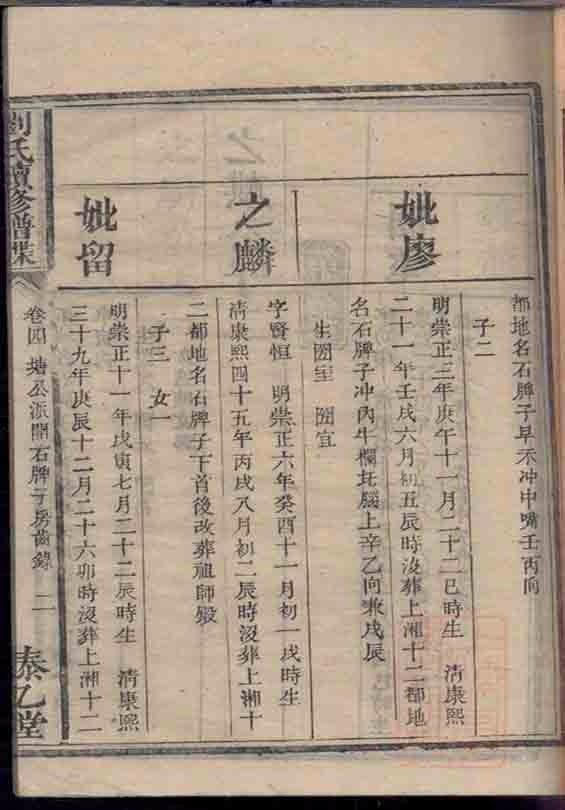 都地名石牌子旱禾冲中嘴壬丙向
子二
妣廖
明崇正三年庚午十一月二十二巳時生 清康熙
二十一年壬戌六月初五辰時沒葬上湘十二都地
名石牌子冲內牛欄坵腦上辛乙向兼戌辰
生國室 國宜
之麟
字賢恒 明崇正六年癸酉十一月初一戌時生
清康熙四十五年丙戌八月初二辰時沒葬上湘十
二都地名石牌子下首後改葬祖師殿
子三 女一
妣留
明崇正十一年戊寅七月二十二辰時生 清康熙
三十九年庚辰十二月二十六卯時沒葬上湘十二
劉氏續修譜牒
卷四 塘公派開石牌子房齒錄 二
泰乙堂